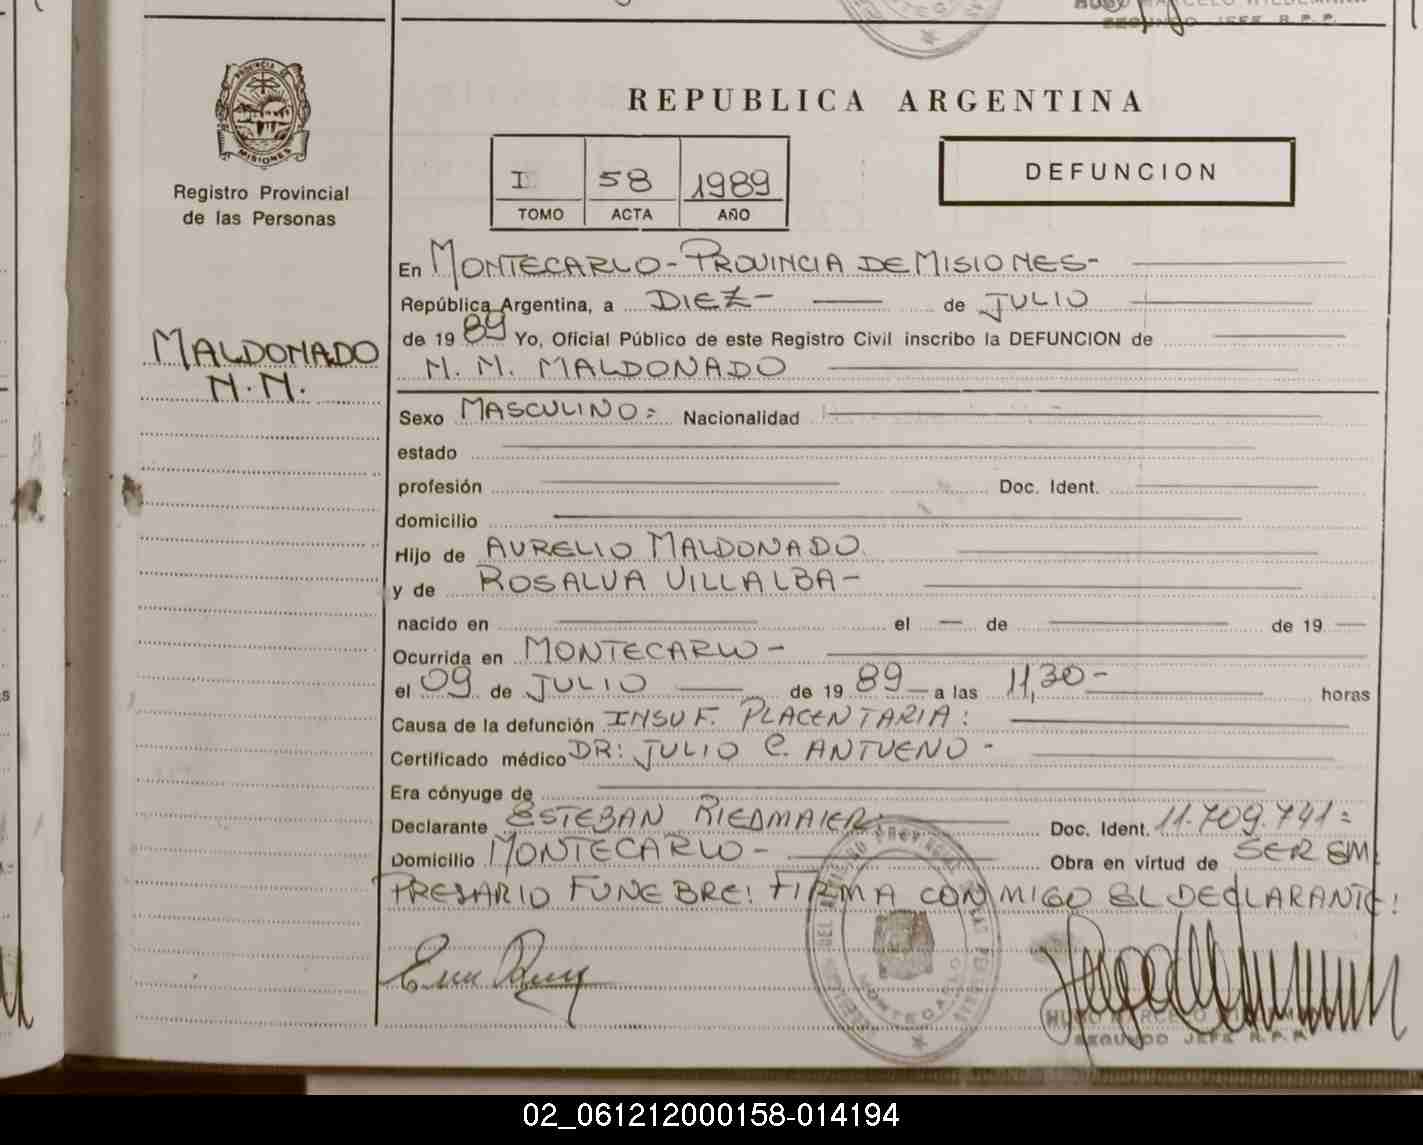 SEGUNDO JEFE R.P.P.
REPUBLICA ARGENTINA
PROVINCIA DE
MISIONES
Registro Provincial
de las Personas
I 58 1989
TOMO ACTA AÑO
DEFUNCION
En MONTECARLO - PROVINCIA DE MISIONES-
República Argentina, a DIEZ- de JULIO
de 1989 Yo, Oficial Público de este Registro Civil inscribo la DEFUNCION de
N. N. MALDONADO
MALDONADO
N. N.
Sexo MASCULINO= Nacionalidad
estado
profesión Doc. Ident.
domicilio
Hijo de AURELIO MALDONADO.
y de ROSALVA VILLALBA-
nacido en el de de 19
Ocurrida en MONTECARLO-
el 09 de JULIO de 1989 a las 11,30- horas
Causa de la defunción INSUF. PLACENTARIA:
Certificado médico DR: JULIO C. ANTUENO-
Era cónyuge de
Declarante ESTEBAN RIEDMAIER. Doc. Ident. 11.709.741=
Domicilio MONTECARLO- Obra en virtud de SER EM
PRESARIO FUNEBRE: FIRMA CONMIGO EL DECLARANTE:
MONTECARLO
SEGUNDO JEFE R.P.P.
02_061212000158-014194